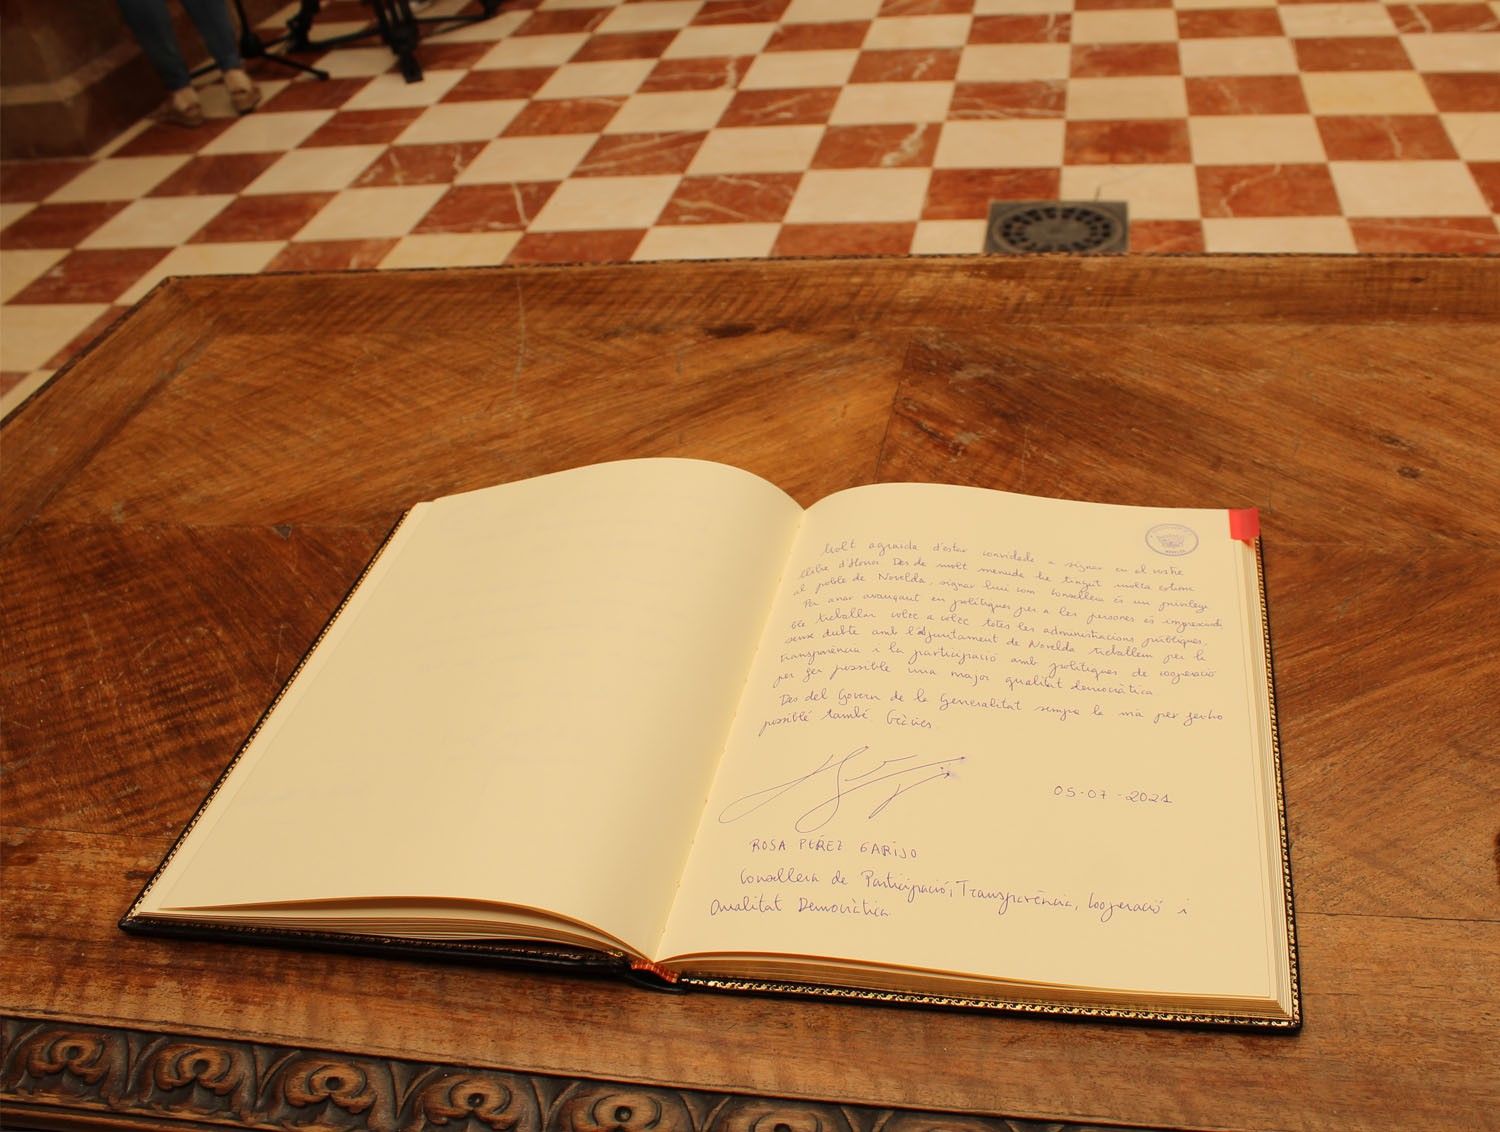 Molt agraida d'estar convidada a signar en el vostre
llibre d'Honor. Des de molt menuda he tingut molta estima
al poble de Novelda, signar hui com Consellera és un privilegi
Per anar avançant en polítiques per a les persones és imprescindi
ble treballar colze a colze totes les administracions públiques.
sense dubte amb l'Ajuntament de Novelda treballem per la
transparència i la participació amb polítiques de cooperació
per fer possible una major qualitat democràtica
Des del Govern de la Generalitat sempre la mà per fer-ho
possible també. Gràcies.
05-07-2021
ROSA PÉREZ GARIJO
Consellera de Participació, Transparència, Cooperació i
Qualitat Democràtica
NOVELDA